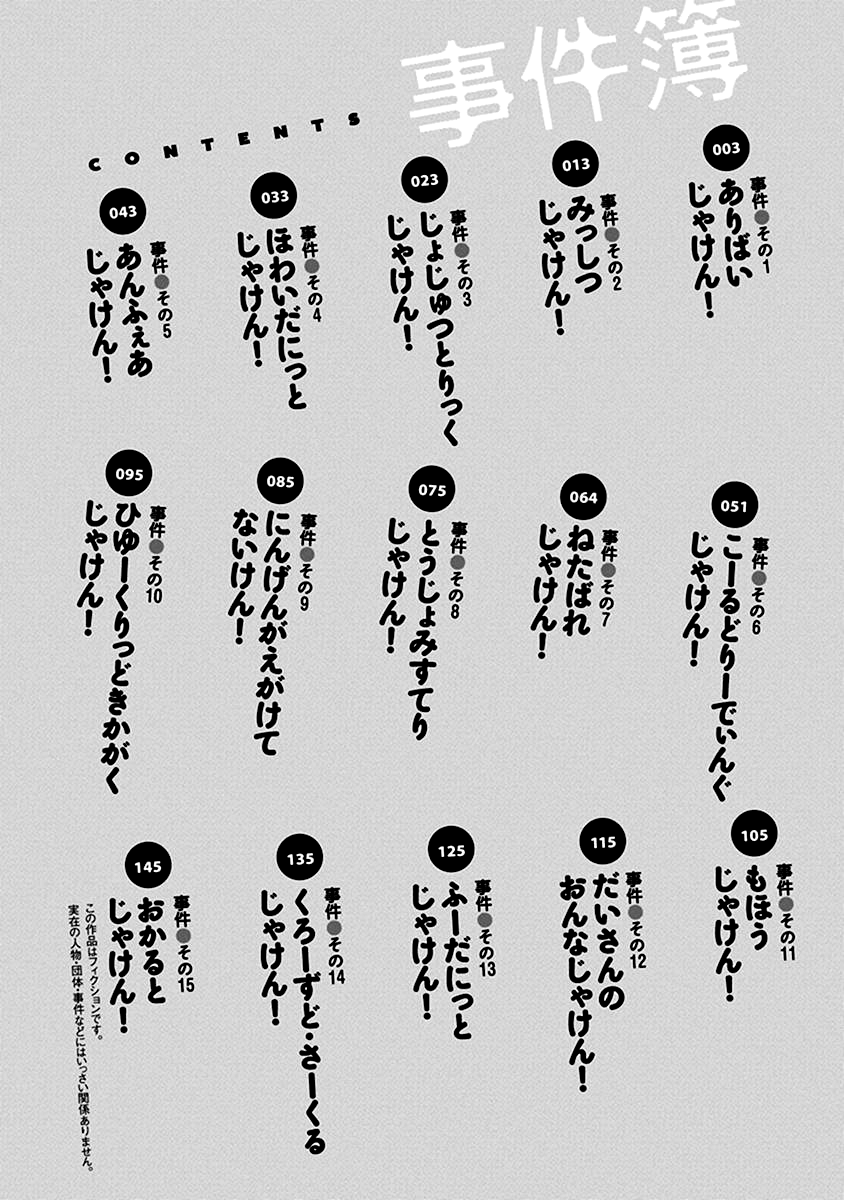 事件簿
CONTENTS
003
事件●その1
ありばい
じゃけん!
013
事件●その2
みっしつ
じゃけん!
023
事件●その3
じょじゅつとりっく
じゃけん!
033
事件●その4
ほわいだにっと
じゃけん!
043
事件●その5
あんふぇあ
じゃけん!
051
事件●その6
こーるどりーでぃんぐ
じゃけん!
064
事件●その7
ねたばれ
じゃけん!
075
事件●その8
とうじょみすてり
じゃけん!
085
事件●その9
にんげんがえがけて
ないけん!
095
事件●その10
ひゆーくりっどきかがく
じゃけん!
105
事件●その11
もほう
じゃけん!
115
事件●その12
だいさんの
おんなじゃけん!
125
事件●その13
ふーだにっと
じゃけん!
135
事件●その14
くろーずど・さーくる
じゃけん!
145
事件●その15
おかると
じゃけん!
この作品はフィクションです。
実在の人物・団体・事件などにはいっさい関係ありません。